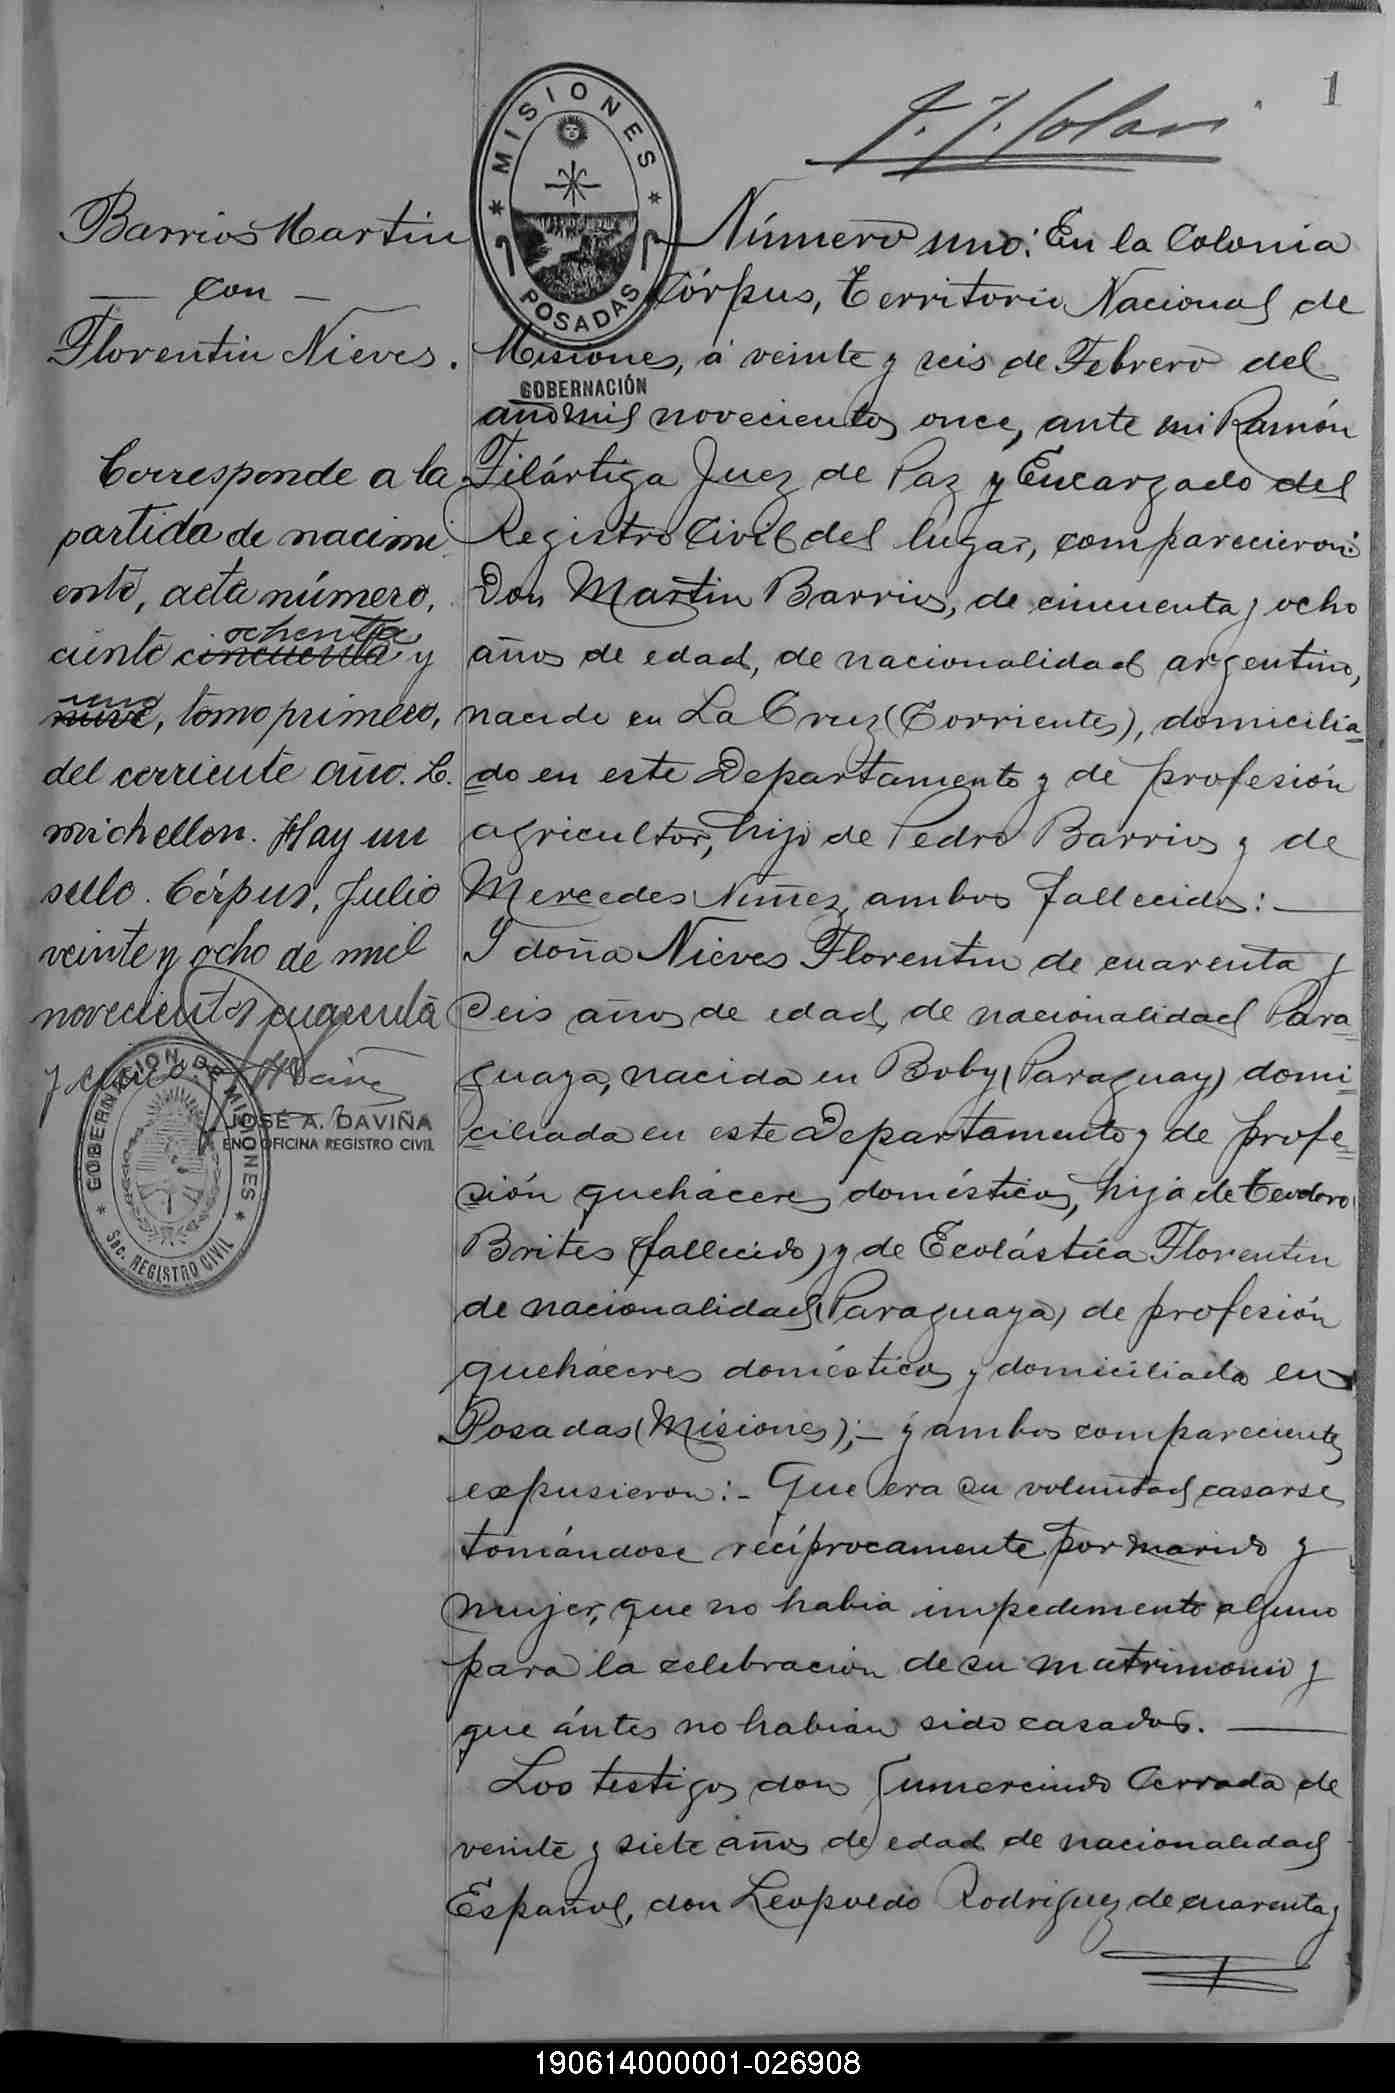 1
MISIONES
POSADAS
GOBERNACIÓN
Barrios Martin
— con —
Florentin Nieves.
Corresponde a la
partida de nacimi
ento, acta número,
ochenta
ciento cincuenta y
uno
nueve, tomo primero,
del corriente año. C.
michellon. Hay un
sello. Córpus, Julio
veinte y ocho de mil
novecientos cuarenta
y
GOBERNACION DE MISIONES
Sec. REGISTRO CIVIL
JOSÉ A. DAVIÑA
ENC. OFICINA REGISTRO CIVIL
Número uno: En la Colonia
Córpus, Territorio Nacional de
Misiones, á veinte y seis de Febrero del
año mil novecientos once, ante mi Ramón
Filártiga Juez de Paz y Encargado del
Registro Civil del lugar, comparecieron:
Don Martin Barrios, de cincuenta y ocho
años de edad, de nacionalidad argentino,
nacido en La Cruz (Corrientes), domicilia=
do en este Departamento y de profesión
agricultor, hijo de Pedro Barrios y de
Mercedes Nuñez, ambos fallecidos: —
Y doña Nieves Florentin de cuarenta y
seis años de edad, de nacionalidad Para=
guaya, nacida en Boby (Paraguay) domi=
ciliada en este Departamento y de profe=
sión quehaceres domésticos, hija de Teodoro
Brites (fallecido) y de Ecolástica Florentin
de nacionalidad (Paraguaya) de profesión
quehaceres domésticos y domiciliada en
Posadas (Misiones);— y ambos comparecientes
expusieron:- Que era su voluntad casarse,
tomándose recíprocamente por marido y
mujer, que no habia impedimento alguno
para la celebracion de su matrimonio y
que ántes no habian sido casados. —
Los testigos don Gumercindo Cerrada de
veinte y siete años de edad de nacionalidad
Español, don Leopoldo Rodriguez de cuarenta y
190614000001-026908